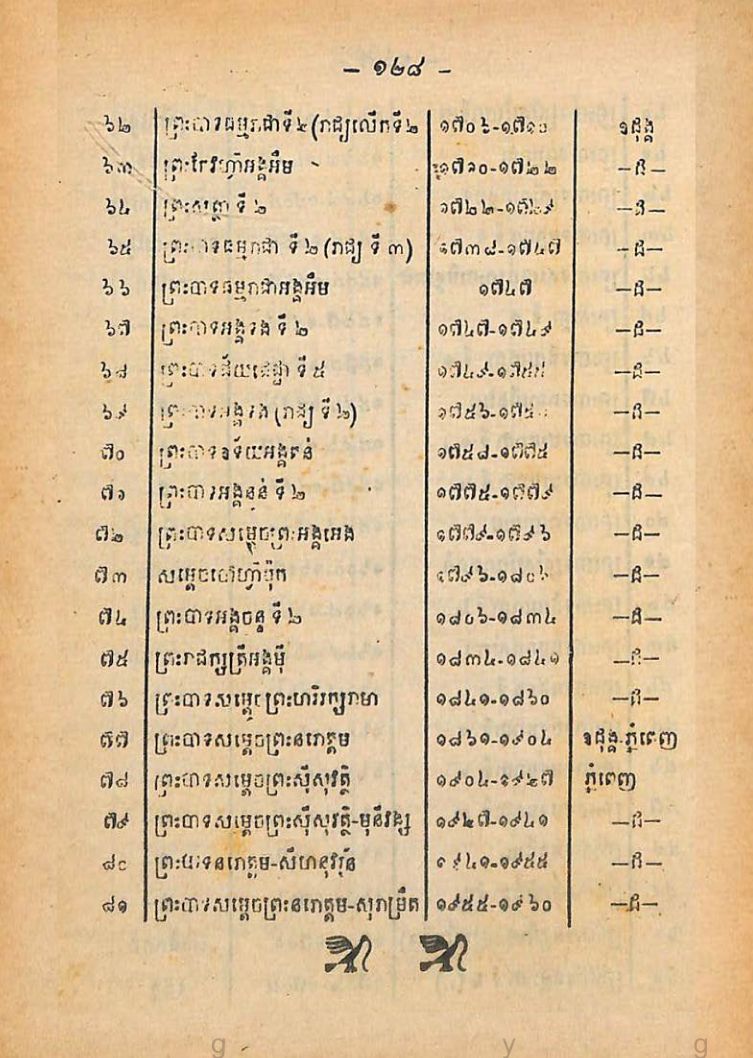 – ១២៨ –
៦២ ព្រះបាទធម្មរាជាទី៤ (រាជ្យលើកទី២ ១៧០៦-១៧១០ ឧដុង្គ
៦៣ ព្រះកែវហ៊្វាអង្គអឹម ១៧១០-១៧២២ —ដ—
៦៤ ព្រះសត្ថា ទី ២ ១៧២២-១៧២៩ —ដ—
៦៥ ព្រះបាទធម្មរាជា ទី ២ (រាជ្យ ទី ៣) ១៧៣៨-១៧៤៧ —ដ—
៦៦ ព្រះបាទធម្មរាជាអង្គអឹម ១៧៤៧ —ដ—
៦៧ ព្រះបាទអង្គទង ទី ២ ១៧៤៧-១៧៤៩ —ដ—
៦៨ ព្រះបាទជ័យជេដ្ឋា ទី ៥ ១៧៤៩-១៧៥៥ —ដ—
៦៩ ព្រះបាទអង្គទង (រាជ្យ ទី ២) ១៧៥៦-១៧៥ —ដ—
៧០ ព្រះបាទឧទ័យអង្គតន់ ១៧៥៨-១៧៧៥ —ដ—
៧១ ព្រះបាទអង្គនន់ ទី ២ ១៧៧៥-១៧៧៩ —ដ—
៧២ ព្រះបាទសម្តេចព្រះអង្គអេង ១៧៧៩-១៧៩៦ —ដ—
៧៣ សម្តេចចៅហ៊្វាប៉ុក ១៧៩៦-១៨០៦ —ដ—
៧៤ ព្រះបាទអង្គចន្ទ ទី ២ ១៨០៦-១៨៣៤ —ដ—
៧៥ ព្រះរាជក្សត្រីអង្គម៉ី ១៨៣៤-១៨៤១ —ដ—
៧៦ ព្រះបាទសម្តេចព្រះហរិរក្សរាមា ១៨៤១-១៨៦០ —ដ—
៧៧ ព្រះបាទសម្តេចព្រះនរោត្តម ១៨៦១-១៩០៤ ឧដុង្គ.ភ្នំពេញ
៧៨ ព្រះបាទសម្តេចព្រះស៊ីសុវត្ថិ ១៩០៤-១៩២៧ ភ្នំពេញ
៧៩ ព្រះបាទសម្តេចព្រះស៊ីសុវត្ថិ-មុនីវង្ស ១៩២៧-១៩៤១ —ដ—
៨០ ព្រះបាទនរោត្តម-សីហនុវរ្ម័ន ១៩៤១-១៩៥៥ —ដ—
៨១ ព្រះបាទសម្តេចព្រះនរោត្តម-សុរាម្រឹត ១៩៥៥-១៩៦០ —ដ—
g y g